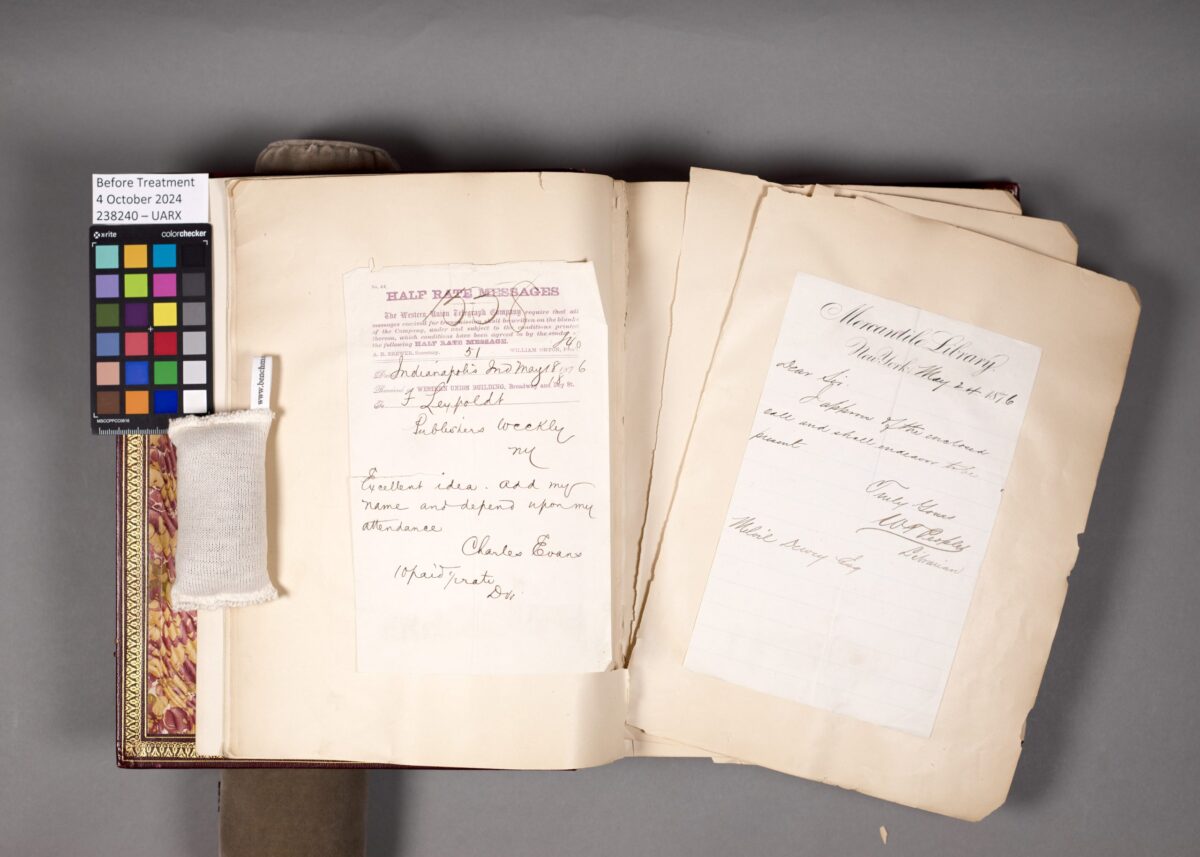 Before Treatment
4 October 2024
238240 – UARX
x-rite
colorchecker
MSCCPPCC0616
www.benchm
No. 44
HALF RATE MESSAGES
The Western Union Telegraph Company require that all
messages received for transmission shall be written on the blanks
of the Company, under and subject to the conditions printed
thereon, which conditions have been agreed to by the sender of
the following HALF RATE MESSAGE.
51
WILLIAM ORTON, Pres
Indianapolis Ind May 18 1876
WESTERN UNION BUILDING, Broadway and Dey St.
To F Leypoldt
Publishers Weekly
NY
Excellent idea. add my
name and depend upon my
attendance
Charles Evans
10 paid ½ rate
Mercantile Library,
New York, May 20 1876
Dear Sir.
I approve of the enclosed
call and shall endeavor to be
present
Truly Yours
Librarian
Melvil Dewey Esq